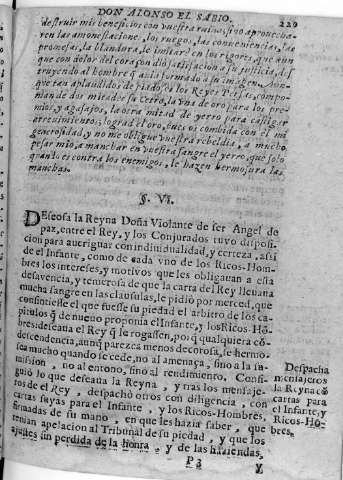 DON ALONSO EL SABIO. 229
destruir mis beneficios con vuestra ruina, sino aprovecha-
ren las amonestaciones, los ruegos, las conveniencias, las
promesas, la blandura, le imitarè en los rigores, que aun
que con dolor del coraçon diò satisfacion à su justicia, des
truyendo al hombre q̃ avia formado à su imagen. Aun-
que tan aplaudidos de piados os los Reyes Padres, compo-
man de dos mitades su Cetro, la vna de oro para los pre-
mios, y agasajos, la otra mitad de yerro para castigar
atrevimientos; lograd el oro, que os combida con el mi
generosidad, y no me obligue vuestra rebeldia, a mucho
pesar mio, a manchar en vuestra sangre el yerro, que solo
quando es contra los enemigos, le hazen hermosura las
manchas.
§. VI.
Deseosa la Reyna Doña Violante de ser Angel de
paz, entre el Rey, y los Conjurados tuvo disposi-
cion para averiguar con individualidad, y certeza, assi
del Infante, como de cada vno de los Ricos-Hom-
bres los intereses, y motivos que les obligavan a esta
desavencia, y temerosa de que la carta del Rey llevava
mucha sangre en las clausulas, le pidiò por merced, que
consintiesse el que fuesse su piedad el arbitro de los ca-
pitulos q̃ de nuevo proponia el Infante, y los Ricos-Hō-
bres: deseava el Rey q̃ le rogassen, por q̃ qualquiera cō-
descendencia, aunq̃ parezca menos decorosa, le hermo-
sea mucho quando se cede, no al amenaça, sino a la su-
mission, no al entono, sino al rendimiento. Consi-
guiò lo que deseava la Reyna, y tras los mensaje-
ros de el Rey, despachò otros con diligencia, con
cartas suyas para el Infante, y los Ricos-Hombres,
firmadas de su mano, en que les hazia saber, que
tenian apelacion al Tribunal de su piedad, y que los
ajustes sin perdida de la honra, y de las haziendas,
Despacha
mensajeros
la Reyna cō
cartas para
el Infante, y
Ricos-Hō-
bres.
P3 y